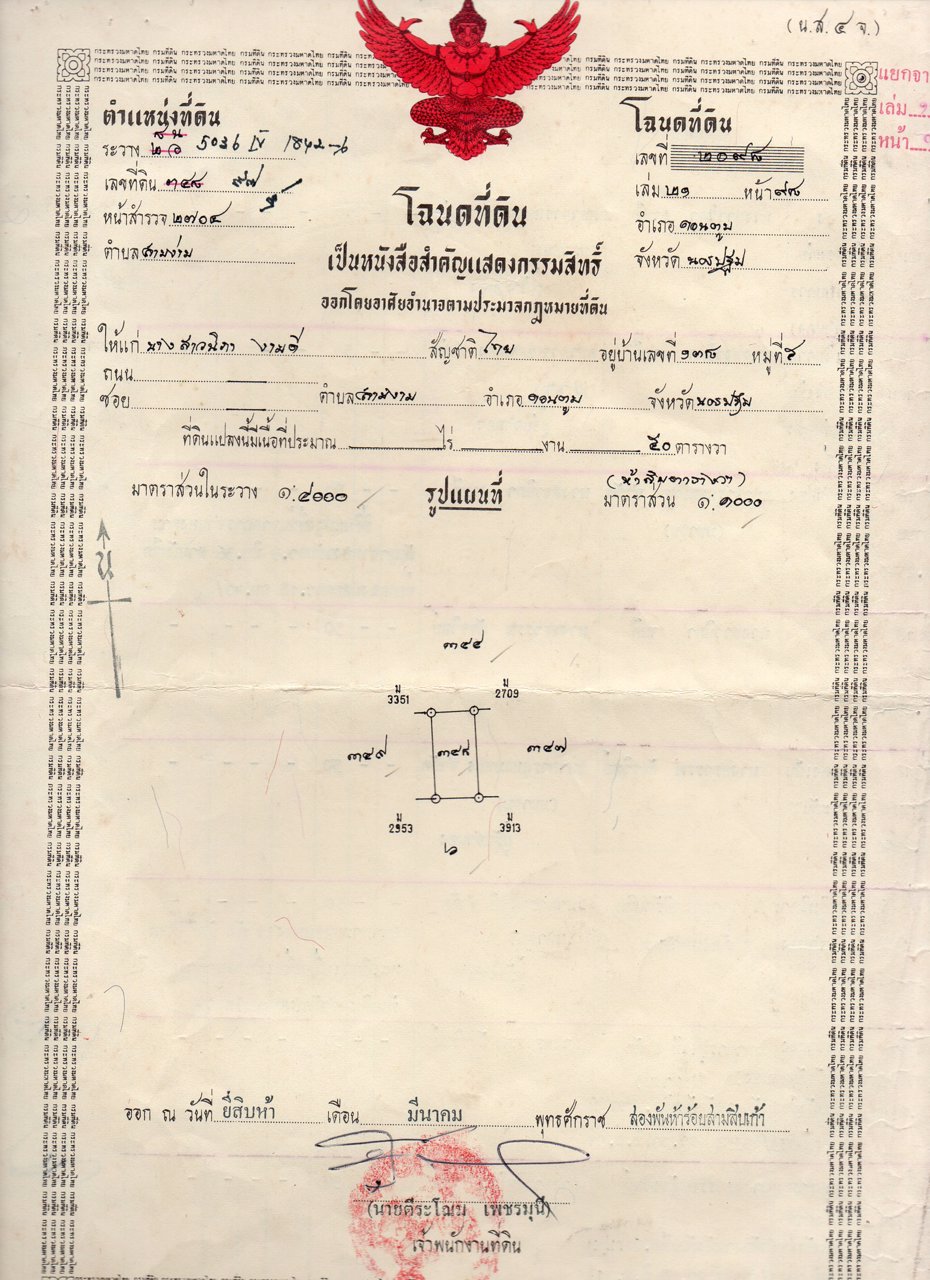 (น.ส.๔ จ.)
แยกจา
เล่ม
หน้า
ตำแหน่งที่ดิน
ระวาง 5036 IV 1842-6
เลขที่ดิน ๓๔๘ ๙๗
หน้าสำรวจ ๒๗๐๔
ตำบล สามง่าม
โฉนดที่ดิน
เลขที่ ๒๐๙๘
เล่ม ๒๑ หน้า ๙๘
อำเภอ ดอนตูม
จังหวัด นครปฐม
โฉนดที่ดิน
เป็นหนังสือสำคัญแสดงกรรมสิทธิ์
ออกโดยอาศัยอำนาจตามประมวลกฎหมายที่ดิน
ให้แก่ นางสาวนิภา งามดี สัญชาติ ไทย อยู่บ้านเลขที่ ๑๓๘ หมู่ที่
ถนน
ซอย ตำบล สามง่าม อำเภอ ดอนตูม จังหวัด นครปฐม
ที่ดินแปลงนี้มีเนื้อที่ประมาณ ไร่ งาน ๕๐ ตารางวา
(ห้าสิบตารางวา)
มาตราส่วนในระวาง ๑:๔๐๐๐ รูปแผนที่ มาตราส่วน ๑:๑๐๐๐
น
๓๔๔
ม ม
3351 2709
๓๔๙ ๓๔๘ ๓๔๗
ม ม
2953 3913
๖
ออก ณ วันที่ ยี่สิบห้า เดือน มีนาคม พุทธศักราช สองพันห้าร้อยสามสิบเก้า
(นายตีระโฌม เพชรมุนี)
เจ้าพนักงานที่ดิน
กระทรวงมหาดไทย กรมที่ดิน